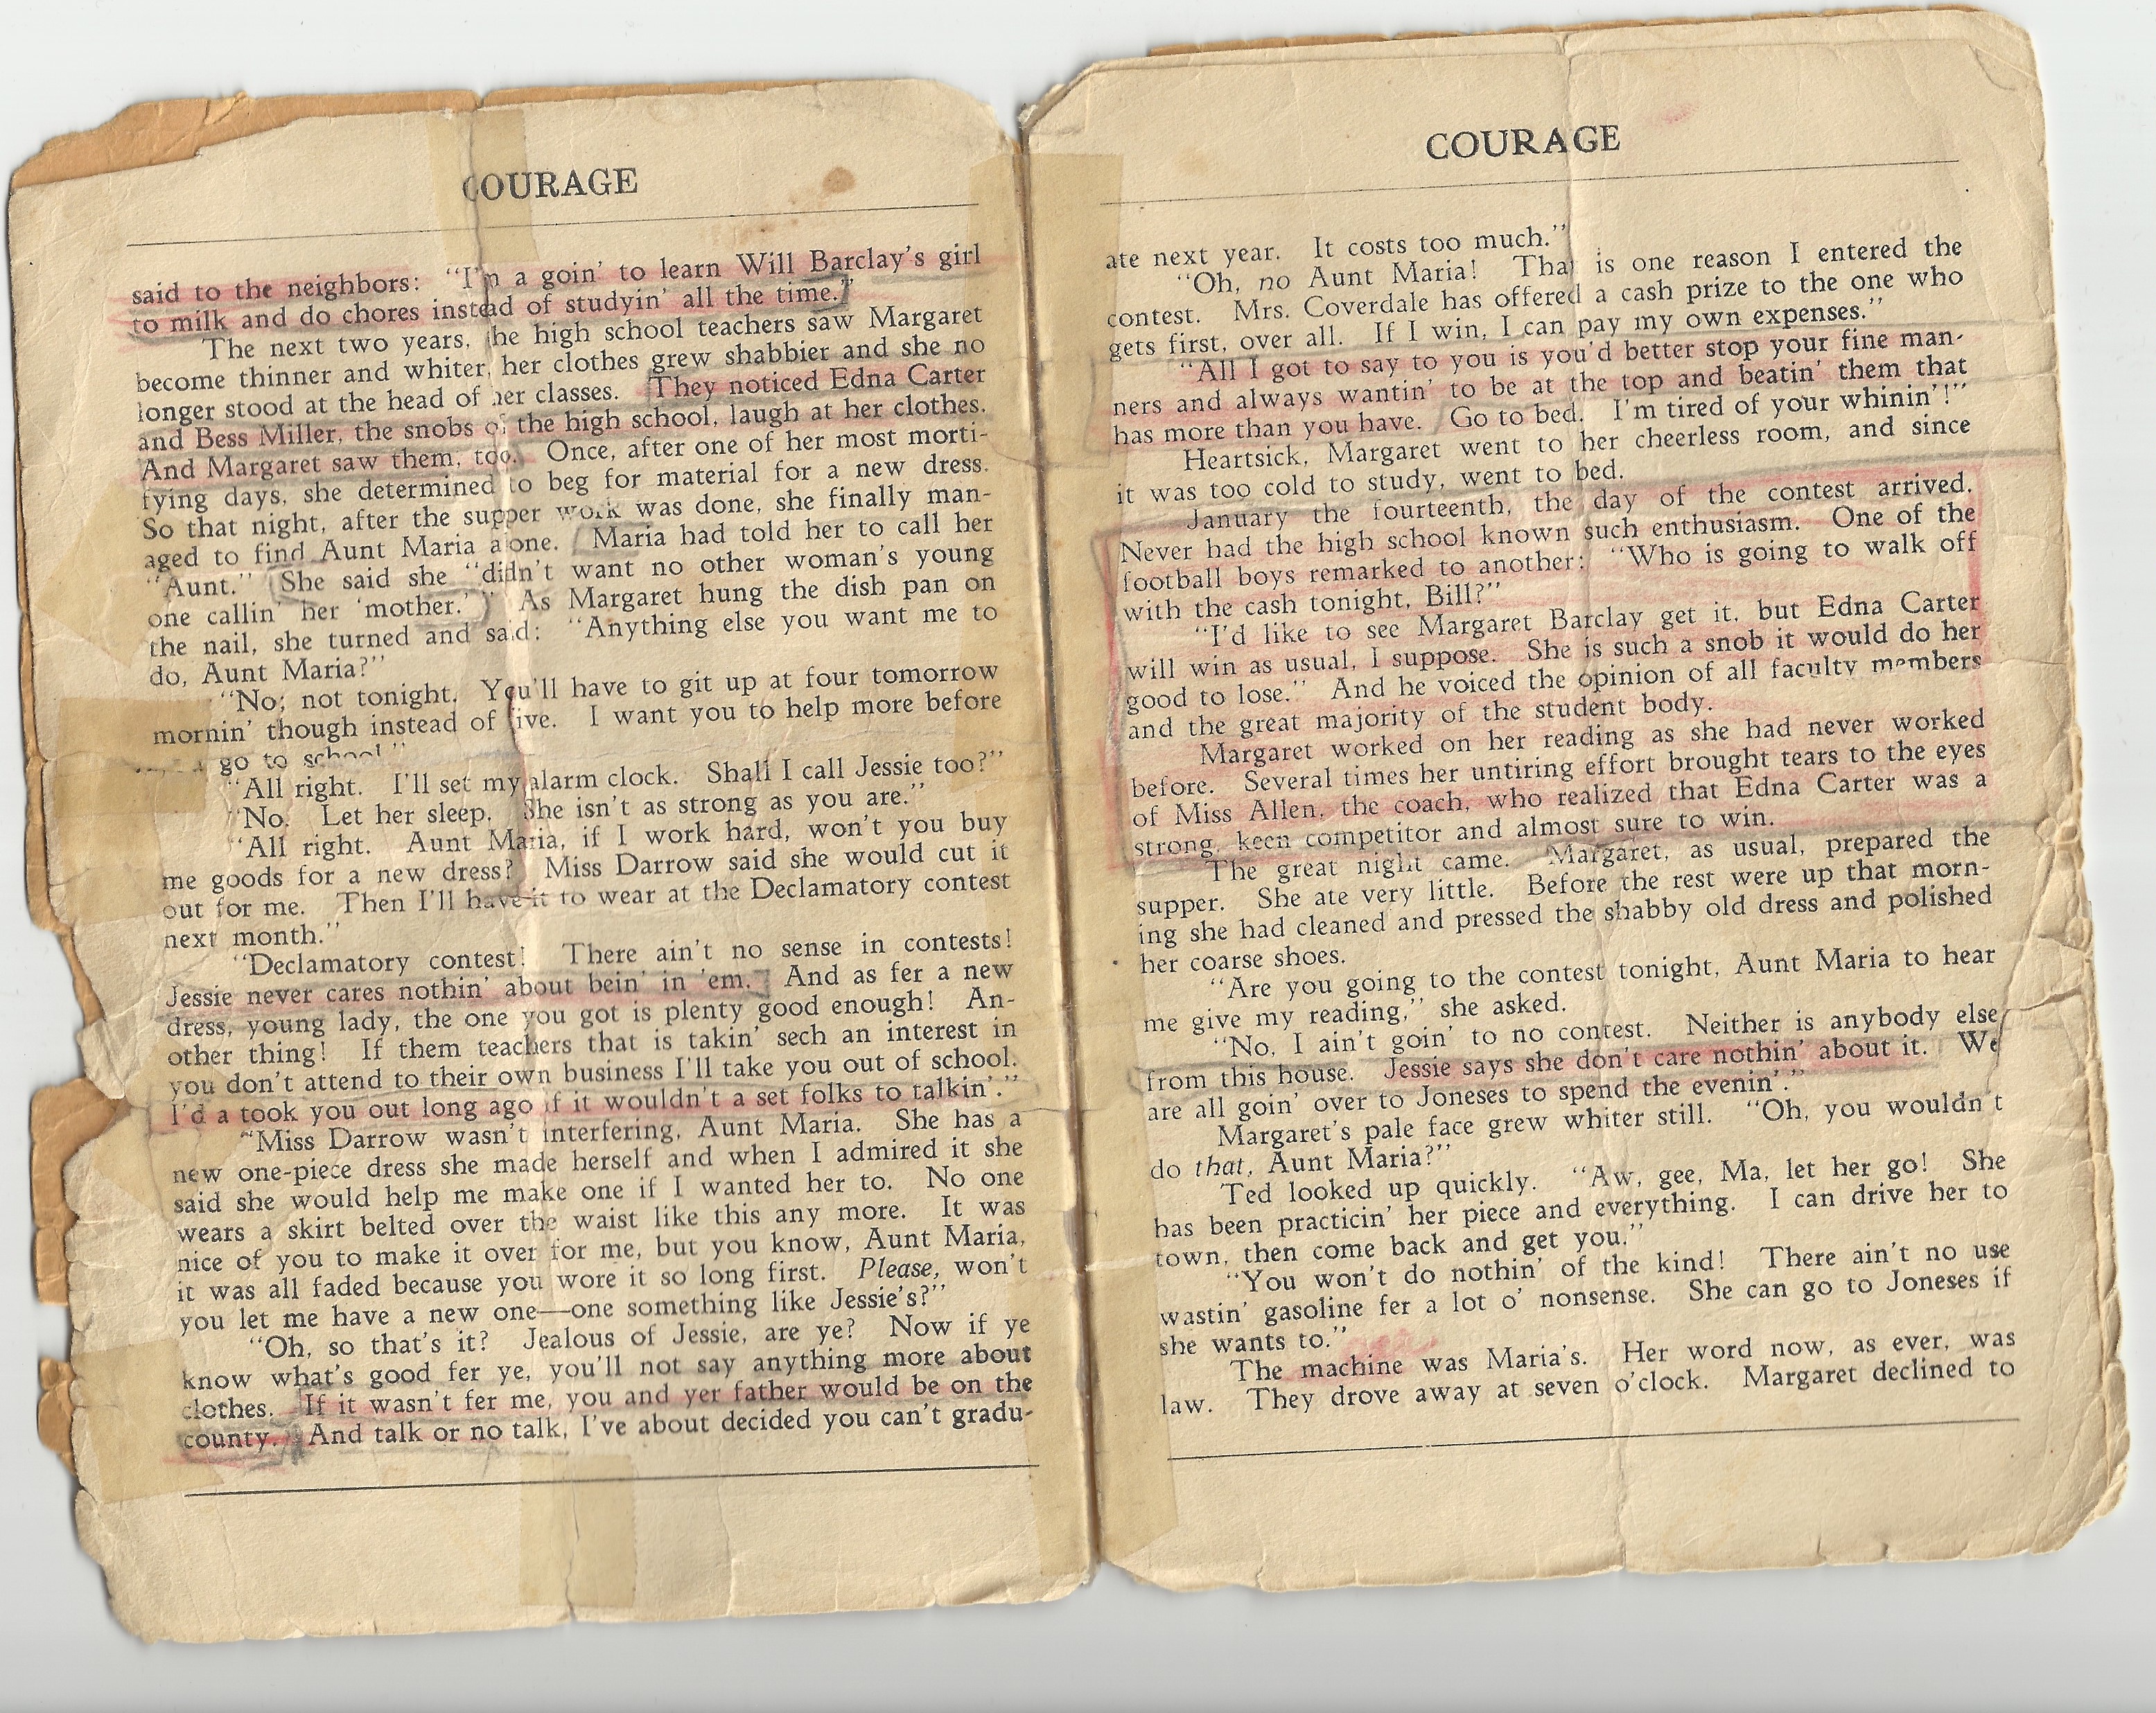 COURAGE
said to the neighbors: “I'm a goin' to learn Will Barclay's girl
to milk and do chores instead of studyin' all the time.”
The next two years, the high school teachers saw Margaret
become thinner and whiter, her clothes grew shabbier and she no
longer stood at the head of her classes. They noticed Edna Carter
and Bess Miller, the snobs of the high school, laugh at her clothes.
And Margaret saw them, too. Once, after one of her most morti-
fying days, she determined to beg for material for a new dress.
So that night, after the supper work was done, she finally man-
aged to find Aunt Maria alone. Maria had told her to call her
“Aunt.” She said she “didn't want no other woman's young
one callin' her ‘mother.’” As Margaret hung the dish pan on
the nail, she turned and said: “Anything else you want me to
do, Aunt Maria?”
“No; not tonight. You'll have to git up at four tomorrow
mornin' though instead of five. I want you to help more before
go to school.”
“All right. I'll set my alarm clock. Shall I call Jessie too?”
“No. Let her sleep. She isn't as strong as you are.”
“All right. Aunt Maria, if I work hard, won't you buy
me goods for a new dress? Miss Darrow said she would cut it
out for me. Then I'll have it to wear at the Declamatory contest
next month.”
“Declamatory contest! There ain't no sense in contests!
Jessie never cares nothin' about bein' in 'em. And as fer a new
dress, young lady, the one you got is plenty good enough! An-
other thing! If them teachers that is takin' sech an interest in
you don't attend to their own business I'll take you out of school.
I'd a took you out long ago if it wouldn't a set folks to talkin'.”
“Miss Darrow wasn't interfering, Aunt Maria. She has a
new one-piece dress she made herself and when I admired it she
said she would help me make one if I wanted her to. No one
wears a skirt belted over the waist like this any more. It was
nice of you to make it over for me, but you know, Aunt Maria,
it was all faded because you wore it so long first. Please, won't
you let me have a new one—one something like Jessie's?”
“Oh, so that's it? Jealous of Jessie, are ye? Now if ye
know what's good fer ye, you'll not say anything more about
clothes. If it wasn't fer me, you and yer father would be on the
county. And talk or no talk, I've about decided you can't gradu-
COURAGE
ate next year. It costs too much.”
“Oh, no Aunt Maria! That is one reason I entered the
contest. Mrs. Coverdale has offered a cash prize to the one who
gets first, over all. If I win, I can pay my own expenses.”
“All I got to say to you is you'd better stop your fine man-
ners and always wantin' to be at the top and beatin' them that
has more than you have. Go to bed. I'm tired of your whinin'!”
Heartsick, Margaret went to her cheerless room, and since
it was too cold to study, went to bed.
January the fourteenth, the day of the contest arrived.
Never had the high school known such enthusiasm. One of the
football boys remarked to another: “Who is going to walk off
with the cash tonight, Bill?”
“I'd like to see Margaret Barclay get it, but Edna Carter
will win as usual, I suppose. She is such a snob it would do her
good to lose.” And he voiced the opinion of all faculty members
and the great majority of the student body.
Margaret worked on her reading as she had never worked
before. Several times her untiring effort brought tears to the eyes
of Miss Allen, the coach, who realized that Edna Carter was a
strong, keen competitor and almost sure to win.
The great night came. Margaret, as usual, prepared the
supper. She ate very little. Before the rest were up that morn-
ing she had cleaned and pressed the shabby old dress and polished
her coarse shoes.
“Are you going to the contest tonight, Aunt Maria to hear
me give my reading,” she asked.
“No, I ain't goin' to no contest. Neither is anybody else
from this house. Jessie says she don't care nothin' about it. We
are all goin' over to Joneses to spend the evenin'.”
Margaret's pale face grew whiter still. “Oh, you wouldn't
do that, Aunt Maria?”
Ted looked up quickly. “Aw, gee, Ma, let her go! She
has been practicin' her piece and everything. I can drive her to
town, then come back and get you.”
“You won't do nothin' of the kind! There ain't no use
wastin' gasoline fer a lot o' nonsense. She can go to Joneses if
she wants to.”
The machine was Maria's. Her word now, as ever, was
law. They drove away at seven o'clock. Margaret declined to